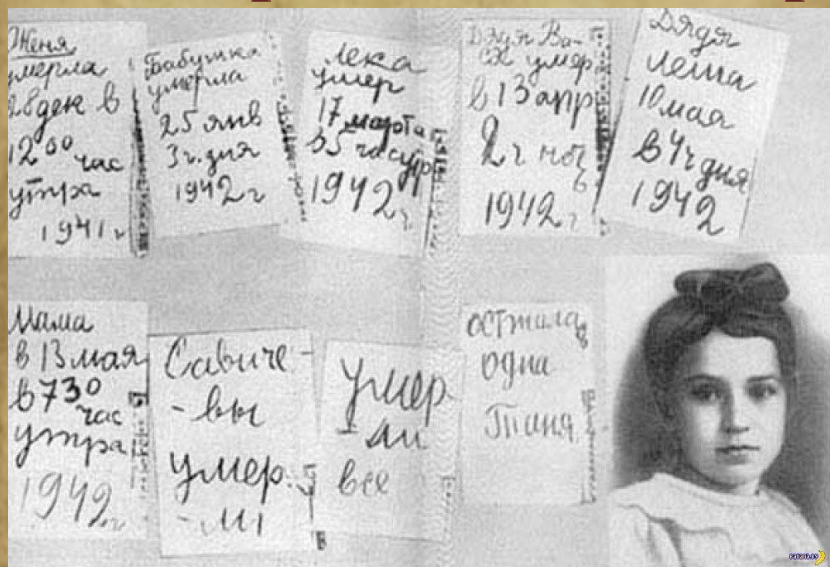 Женя
умерла
28 дек в
12 00 час
утра
1941 г
Бабушка
умерла
25 янв
3 ч. дня
1942 г
Лека
умер
17 марта
в 5 час утр
1942 г.
Дядя Ва-
ся умер
в 13 апр
2 ч ноч
1942 г
Дядя
Леша
10 мая
в 4 ч дня
1942
Мама
в 13 мая
в 7 30
час
утра
1942 г
Савиче-
-вы
умер.
-ли
умер
-ли
все
осталась
одна
Таня